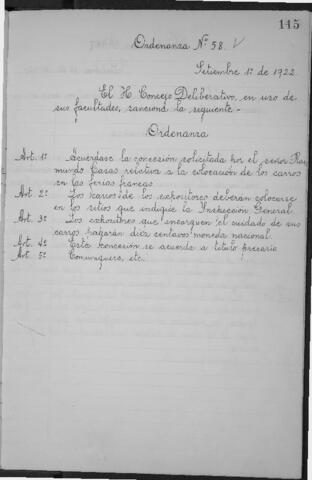 115
Ordenanza Nº 58. V
Setiembre 1º de 1922
El H. Concejo Deliberativo, en uso de
sus facultades, sanciona la siguiente -
Ordenanza
Art. 1º Acuérdase la concesión solicitada por el señor Rai
mundo Casas relativa a la colocación de los carros
en las ferias francas
Art. 2º Los carros de los expositores deberan colocarse
en los sitios que indique la Inspección General.
Art. 3º Los expositores que encarguen el cuidado de sus
carros pagarán diez centavos moneda nacional.
Art. 4º Esta concesión se acuerda a titulo precario
Art. 5º Comuniquese, etc.